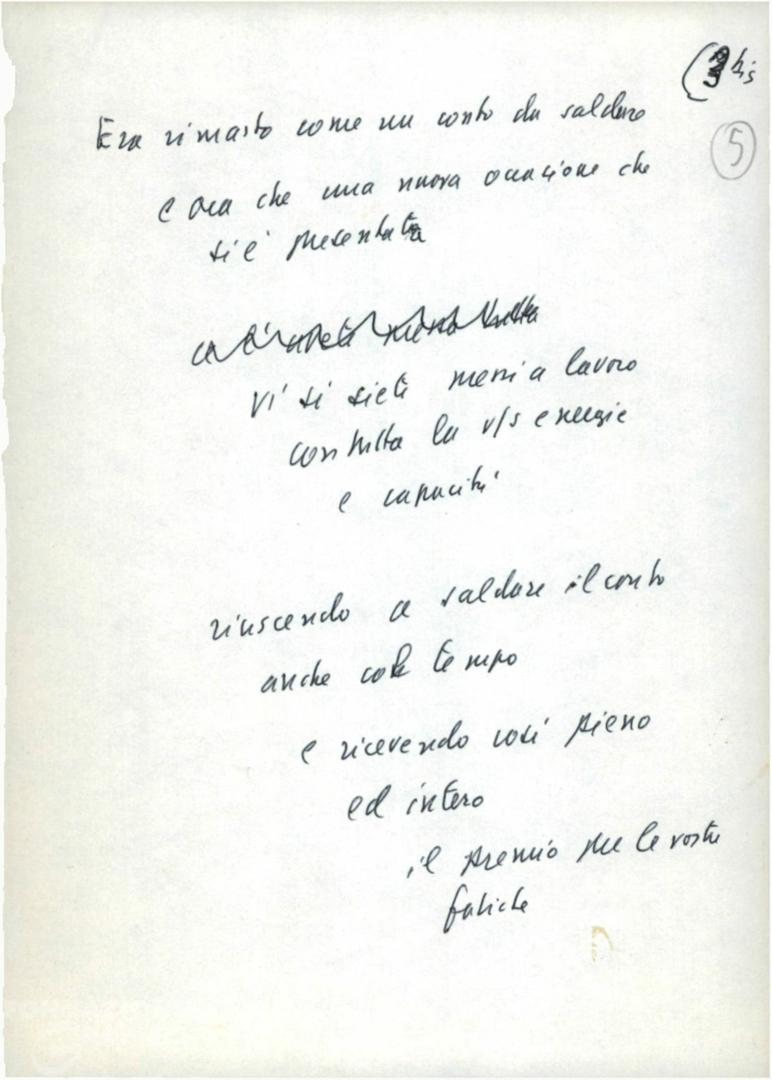 bis
5
Era rimasto come un conto da saldare
e ora che una nuova occasione che
si è presentata
vi si siete messi a lavoro
con tutta la v/s energie
e capacità
riuscendo a saldare il conto
anche col tempo
e ricevendo così pieno
ed intero
il premio per le vostre
fatiche